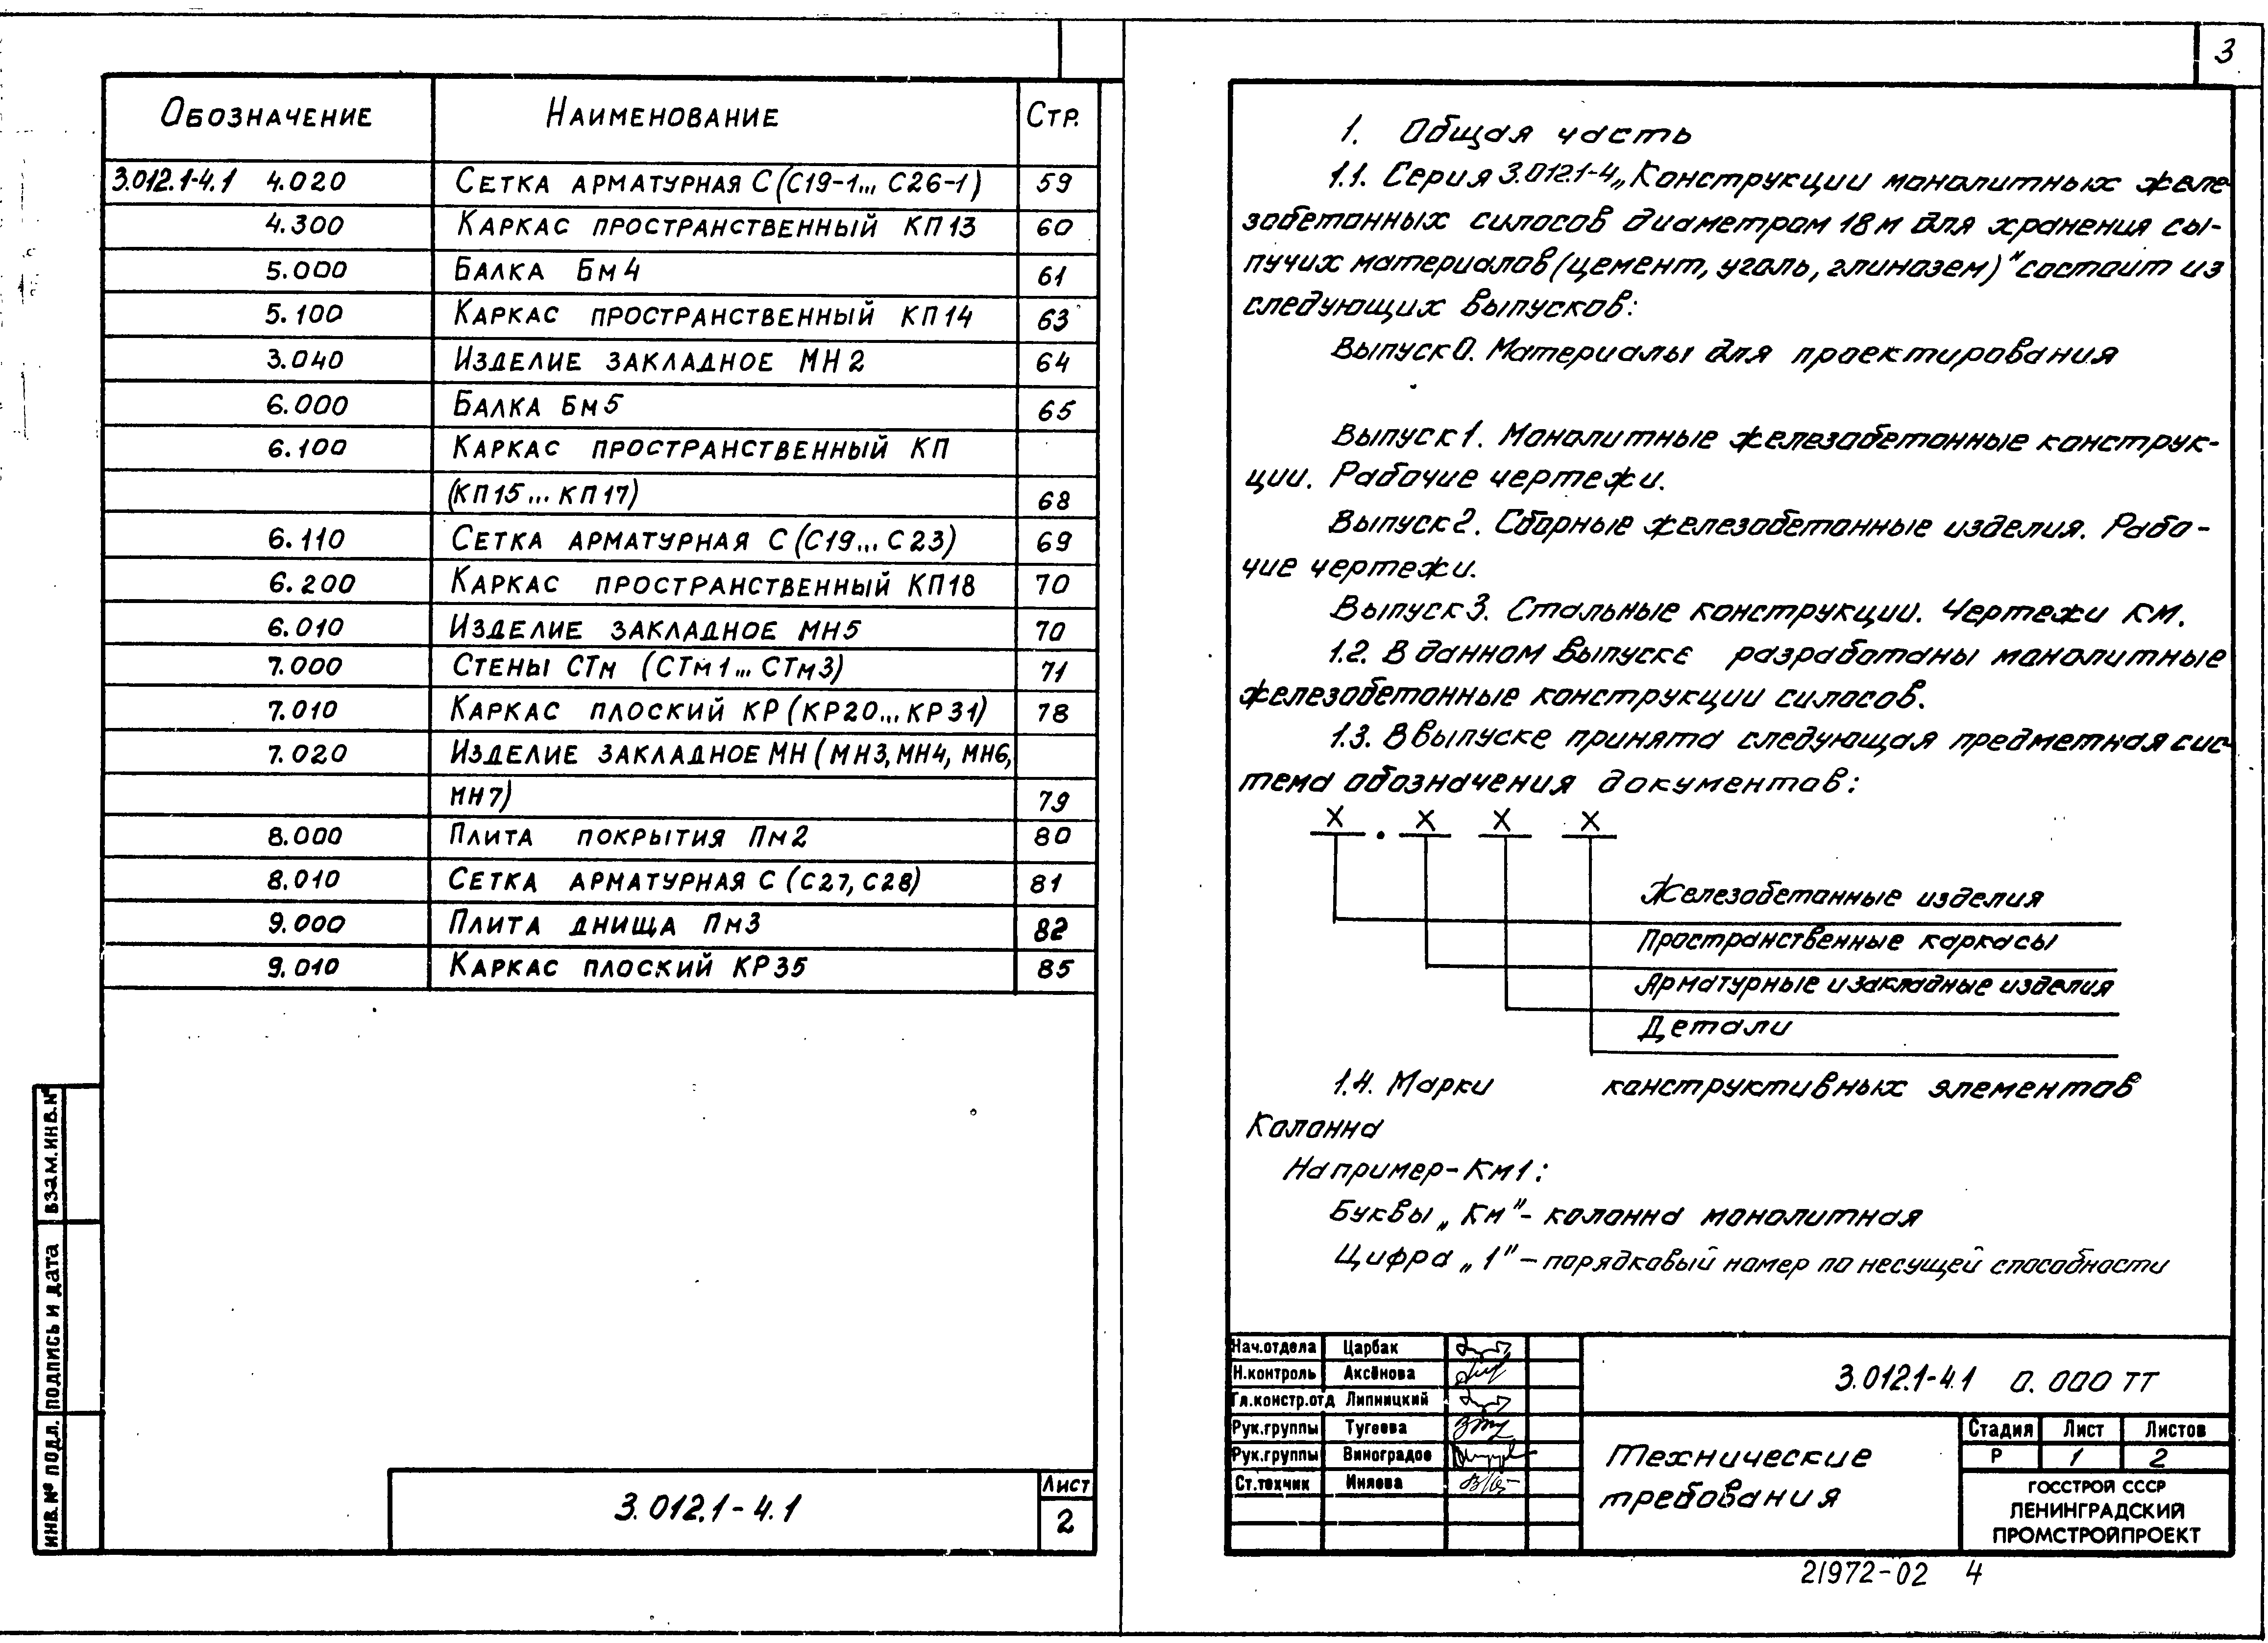 Обозначение Наименование Стр.
3.012.1-4.1 4.020 Сетка арматурная С (С19-1... С26-1) 59
4.300 Каркас пространственный КП13 60
5.000 Балка Бм4 61
5.100 Каркас пространственный КП14 63
3.040 Изделие закладное МН2 64
6.000 Балка Бм5 65
6.100 Каркас пространственный КП
(КП15... КП17) 68
6.110 Сетка арматурная С (С19... С23) 69
6.200 Каркас пространственный КП18 70
6.010 Изделие закладное МН5 70
7.000 Стены СТм (СТм1... СТм3) 71
7.010 Каркас плоский КР (КР20... КР31) 78
7.020 Изделие закладное МН (МН3, МН4, МН6,
МН7) 79
8.000 Плита покрытия Пм2 80
8.010 Сетка арматурная С (С27, С28) 81
9.000 Плита днища Пм3 82
9.010 Каркас плоский КР35 85
ИНВ.№ ПОДЛ. ПОДПИСЬ И ДАТА ВЗАМ.ИНВ.№
3.012.1-4.1
Лист
2
3
1. Общая часть
1.1. Серия 3.012.1-4 „Конструкции монолитных желе-
зобетонных силосов диаметром 18 м для хранения сы-
пучих материалов (цемент, уголь, глинозем)" состоит из
следующих выпусков:
Выпуск 0. Материалы для проектирования
Выпуск 1. Монолитные железобетонные конструк-
ции. Рабочие чертежи.
Выпуск 2. Сборные железобетонные изделия. Рабо-
чие чертежи.
Выпуск 3. Стальные конструкции. Чертежи КМ.
1.2. В данном выпуске разработаны монолитные
железобетонные конструкции силосов.
1.3. В выпуске принята следующая предметная сис-
тема обозначения документов:
X . X X X
Железобетонные изделия
Пространственные каркасы
Арматурные и закладные изделия
Детали
1.4. Марки конструктивных элементов
Колонна
Например - Км1:
Буквы „Км" - колонна монолитная
Цифра „1" - порядковый номер по несущей способности
Нач.отдела Царбак
Н.контроль Аксёнова
Гл.констр.отд Липницкий
Рук.группы Тугеева
Рук.группы Виноградов
Ст.техник Иняева
3.012.1-4.1 0.000 ТТ
Технические
требования
Стадия Лист Листов
Р 1 2
ГОССТРОЙ СССР
ЛЕНИНГРАДСКИЙ
ПРОМСТРОЙПРОЕКТ
21972-02 4